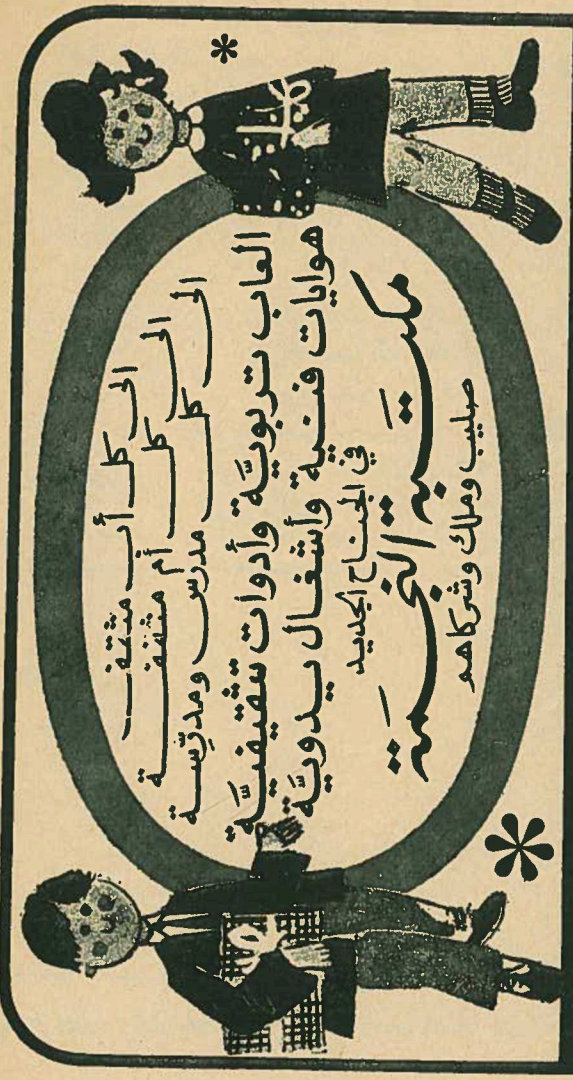 الى كل أب مثقف
الى كل أم مثقفة
الى كل مدرس ومدرّسة
العاب تربويّة وأدوات تثقيفيّة
هوايات فنية وأشغال يدويّة
في الجناح الجديد
مكتبة النجمة
صليب وملك وشركاهم